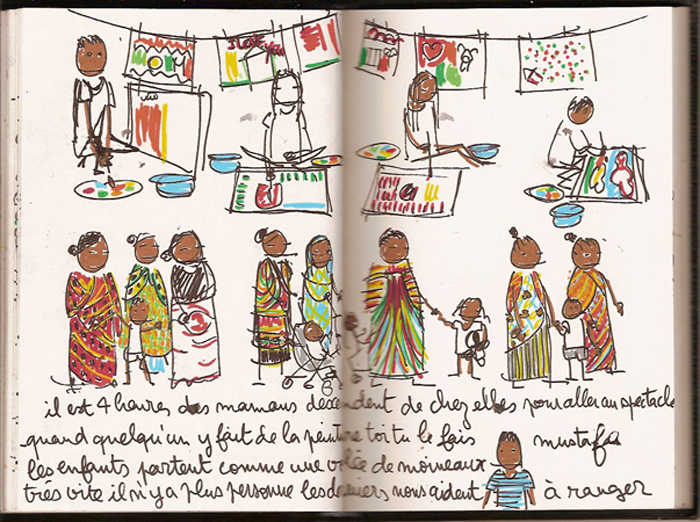 I love you
il est 4 heures des mamans descendent de chez elles pour aller au spectacle
quand quelqu'un y fait de la peinture toi tu le fais mustafa
les enfants partent comme une volée de moineaux
très vite il n'y a plus personne les derniers nous aident à ranger